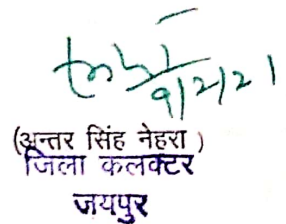 9/2/21
(अन्तर सिंह नेहरा )
जिला कलक्टर
जयपुर